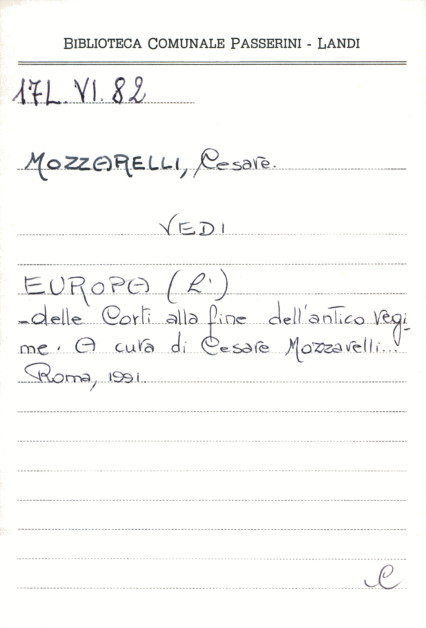 BIBLIOTECA COMUNALE PASSERINI - LANDI
17L.VI.82
MOZZARELLI, Cesare.
VEDI
EUROPA (L')
-delle Corti alla fine dell'antico regi-
me. A cura di Cesare Mozzarelli...
Roma, 1991.
C